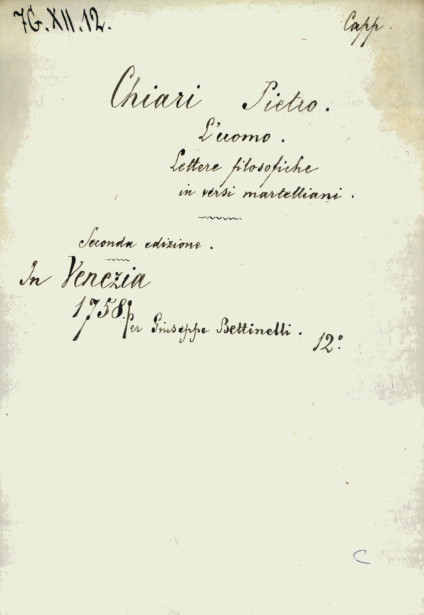 7G.XII.12.
Capp.
Chiari Pietro.
L'uomo.
Lettere filosofiche
in versi martelliani.
Seconda edizione.
In Venezia
1758. Per Giuseppe Bettinelli.
12°
C